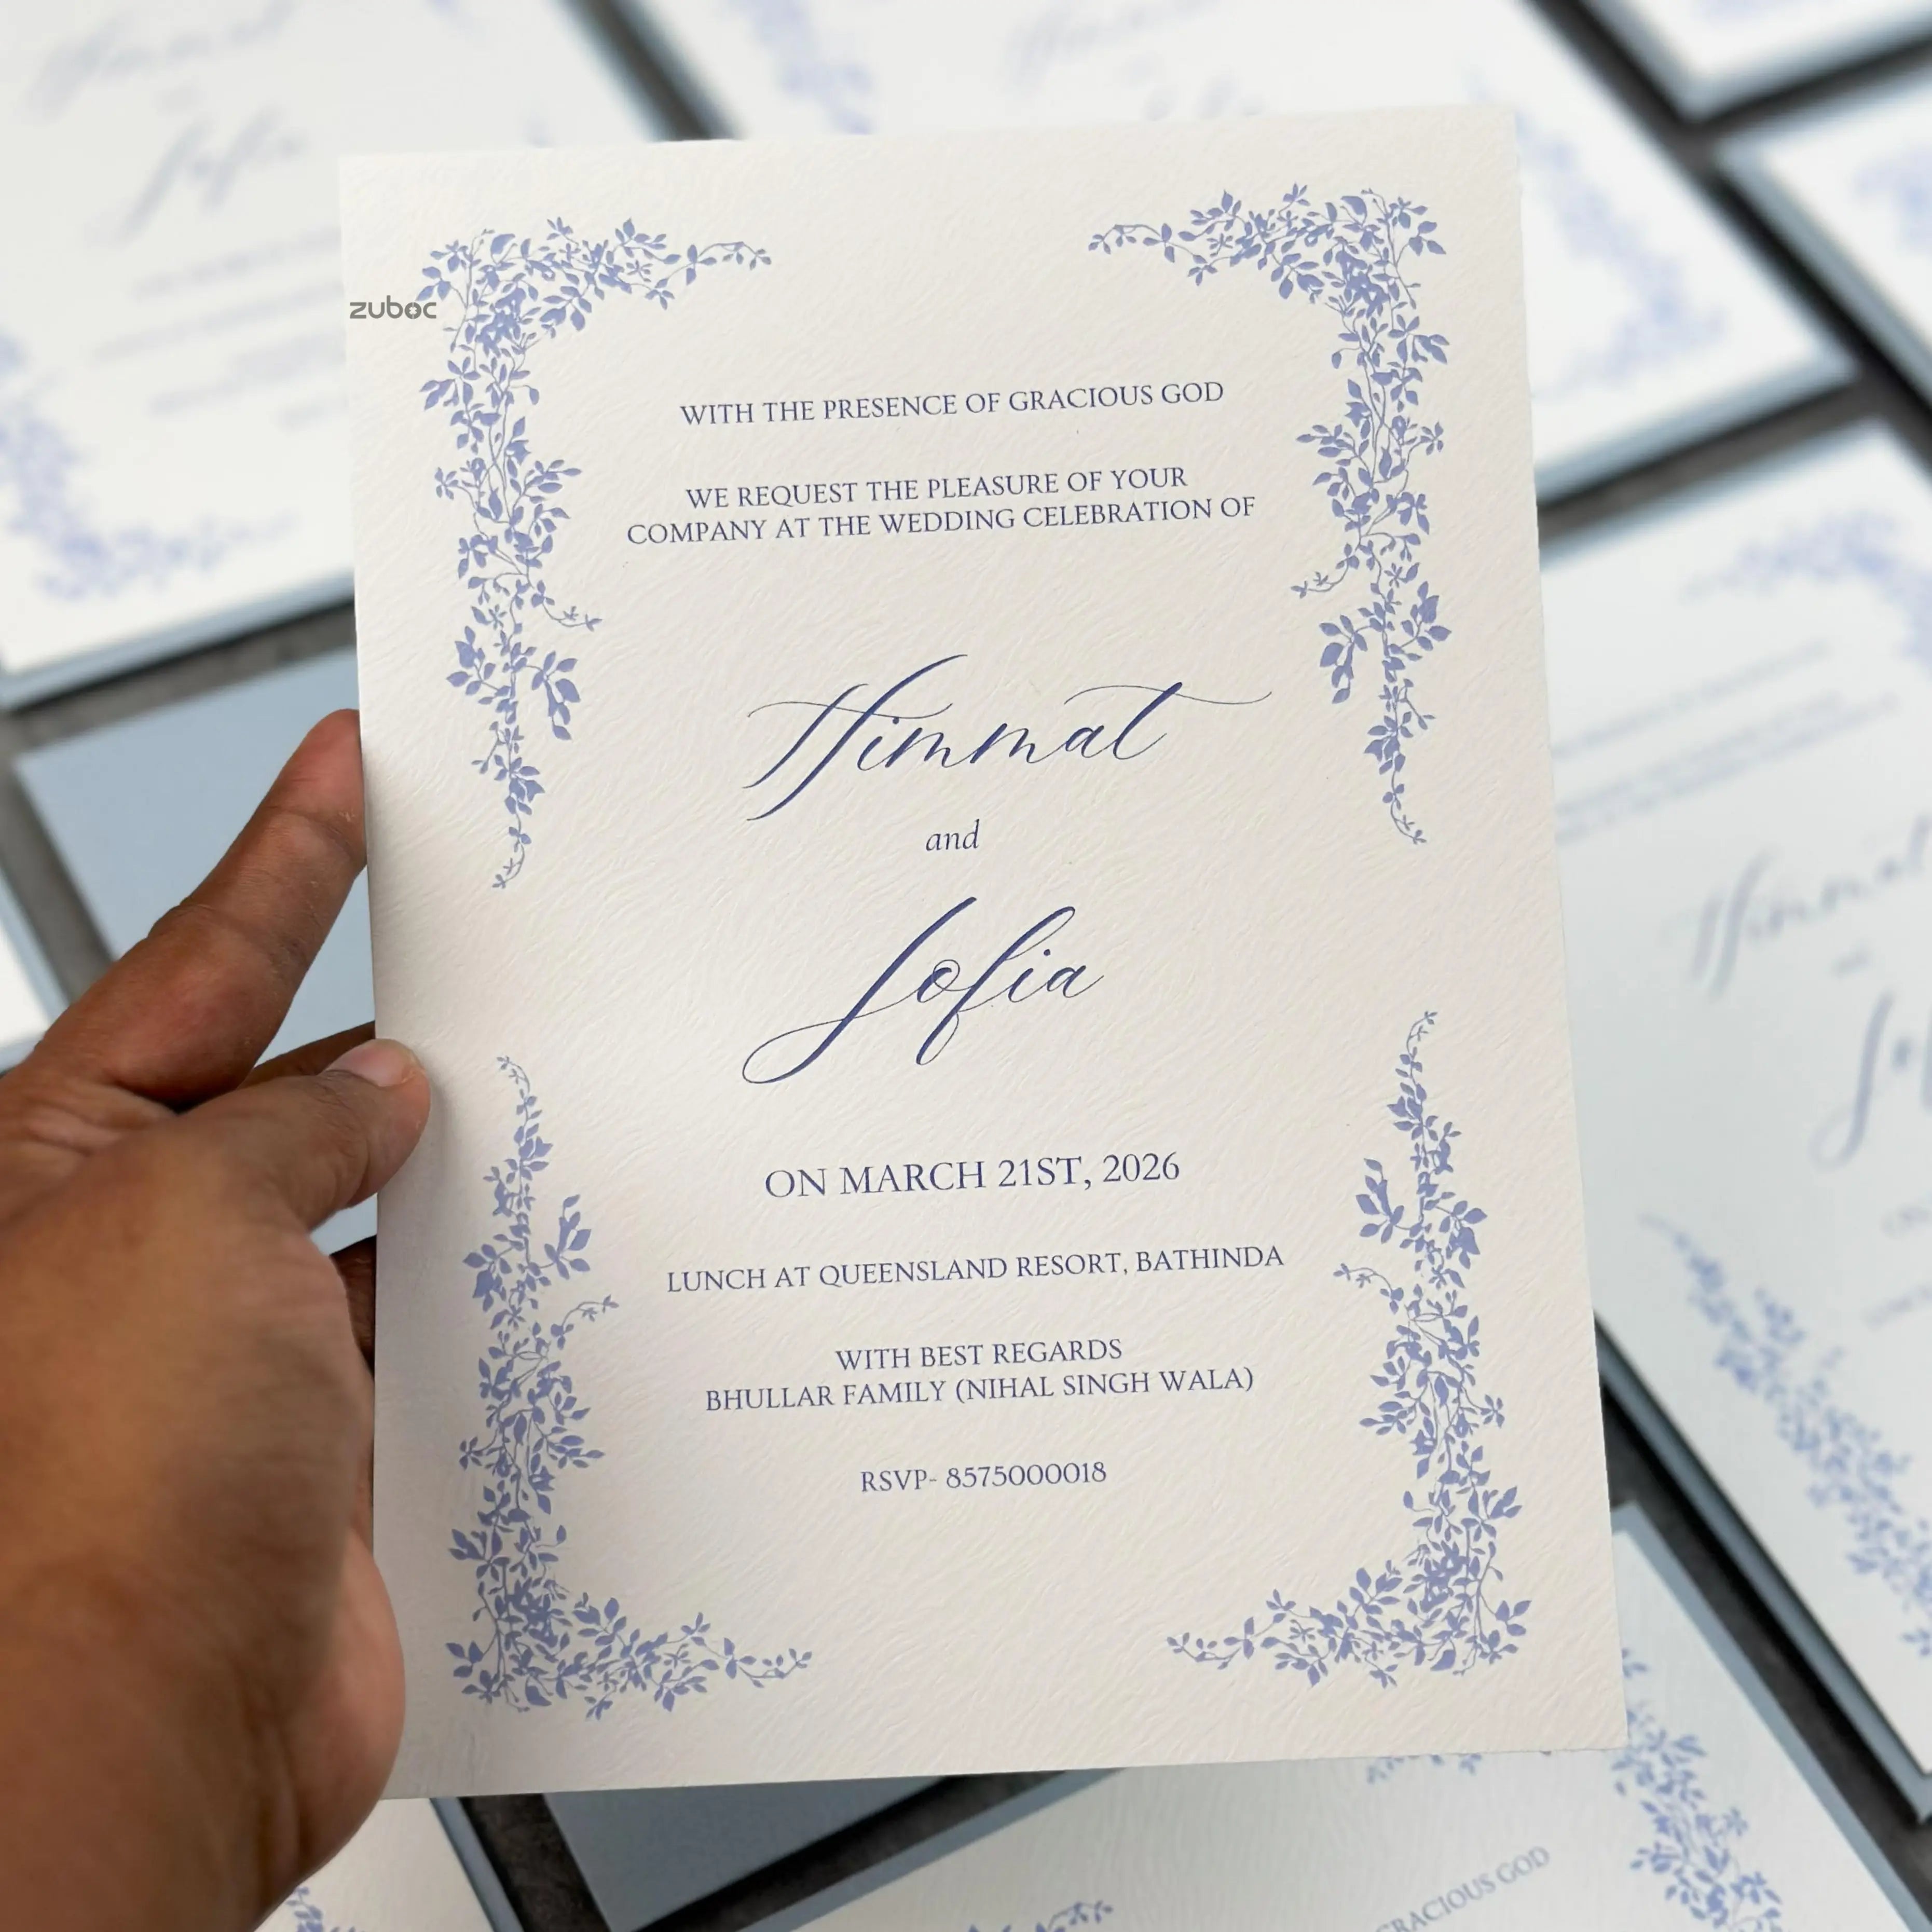 zuboc
WITH THE PRESENCE OF GRACIOUS GOD
WE REQUEST THE PLEASURE OF YOUR
COMPANY AT THE WEDDING CELEBRATION OF
Himmat
and
Sofia
ON MARCH 21ST, 2026
LUNCH AT QUEENSLAND RESORT, BATHINDA
WITH BEST REGARDS
BHULLAR FAMILY (NIHAL SINGH WALA)
RSVP- 8575000018
Himmat
Sofia
Himmat
GRACIOUS GOD